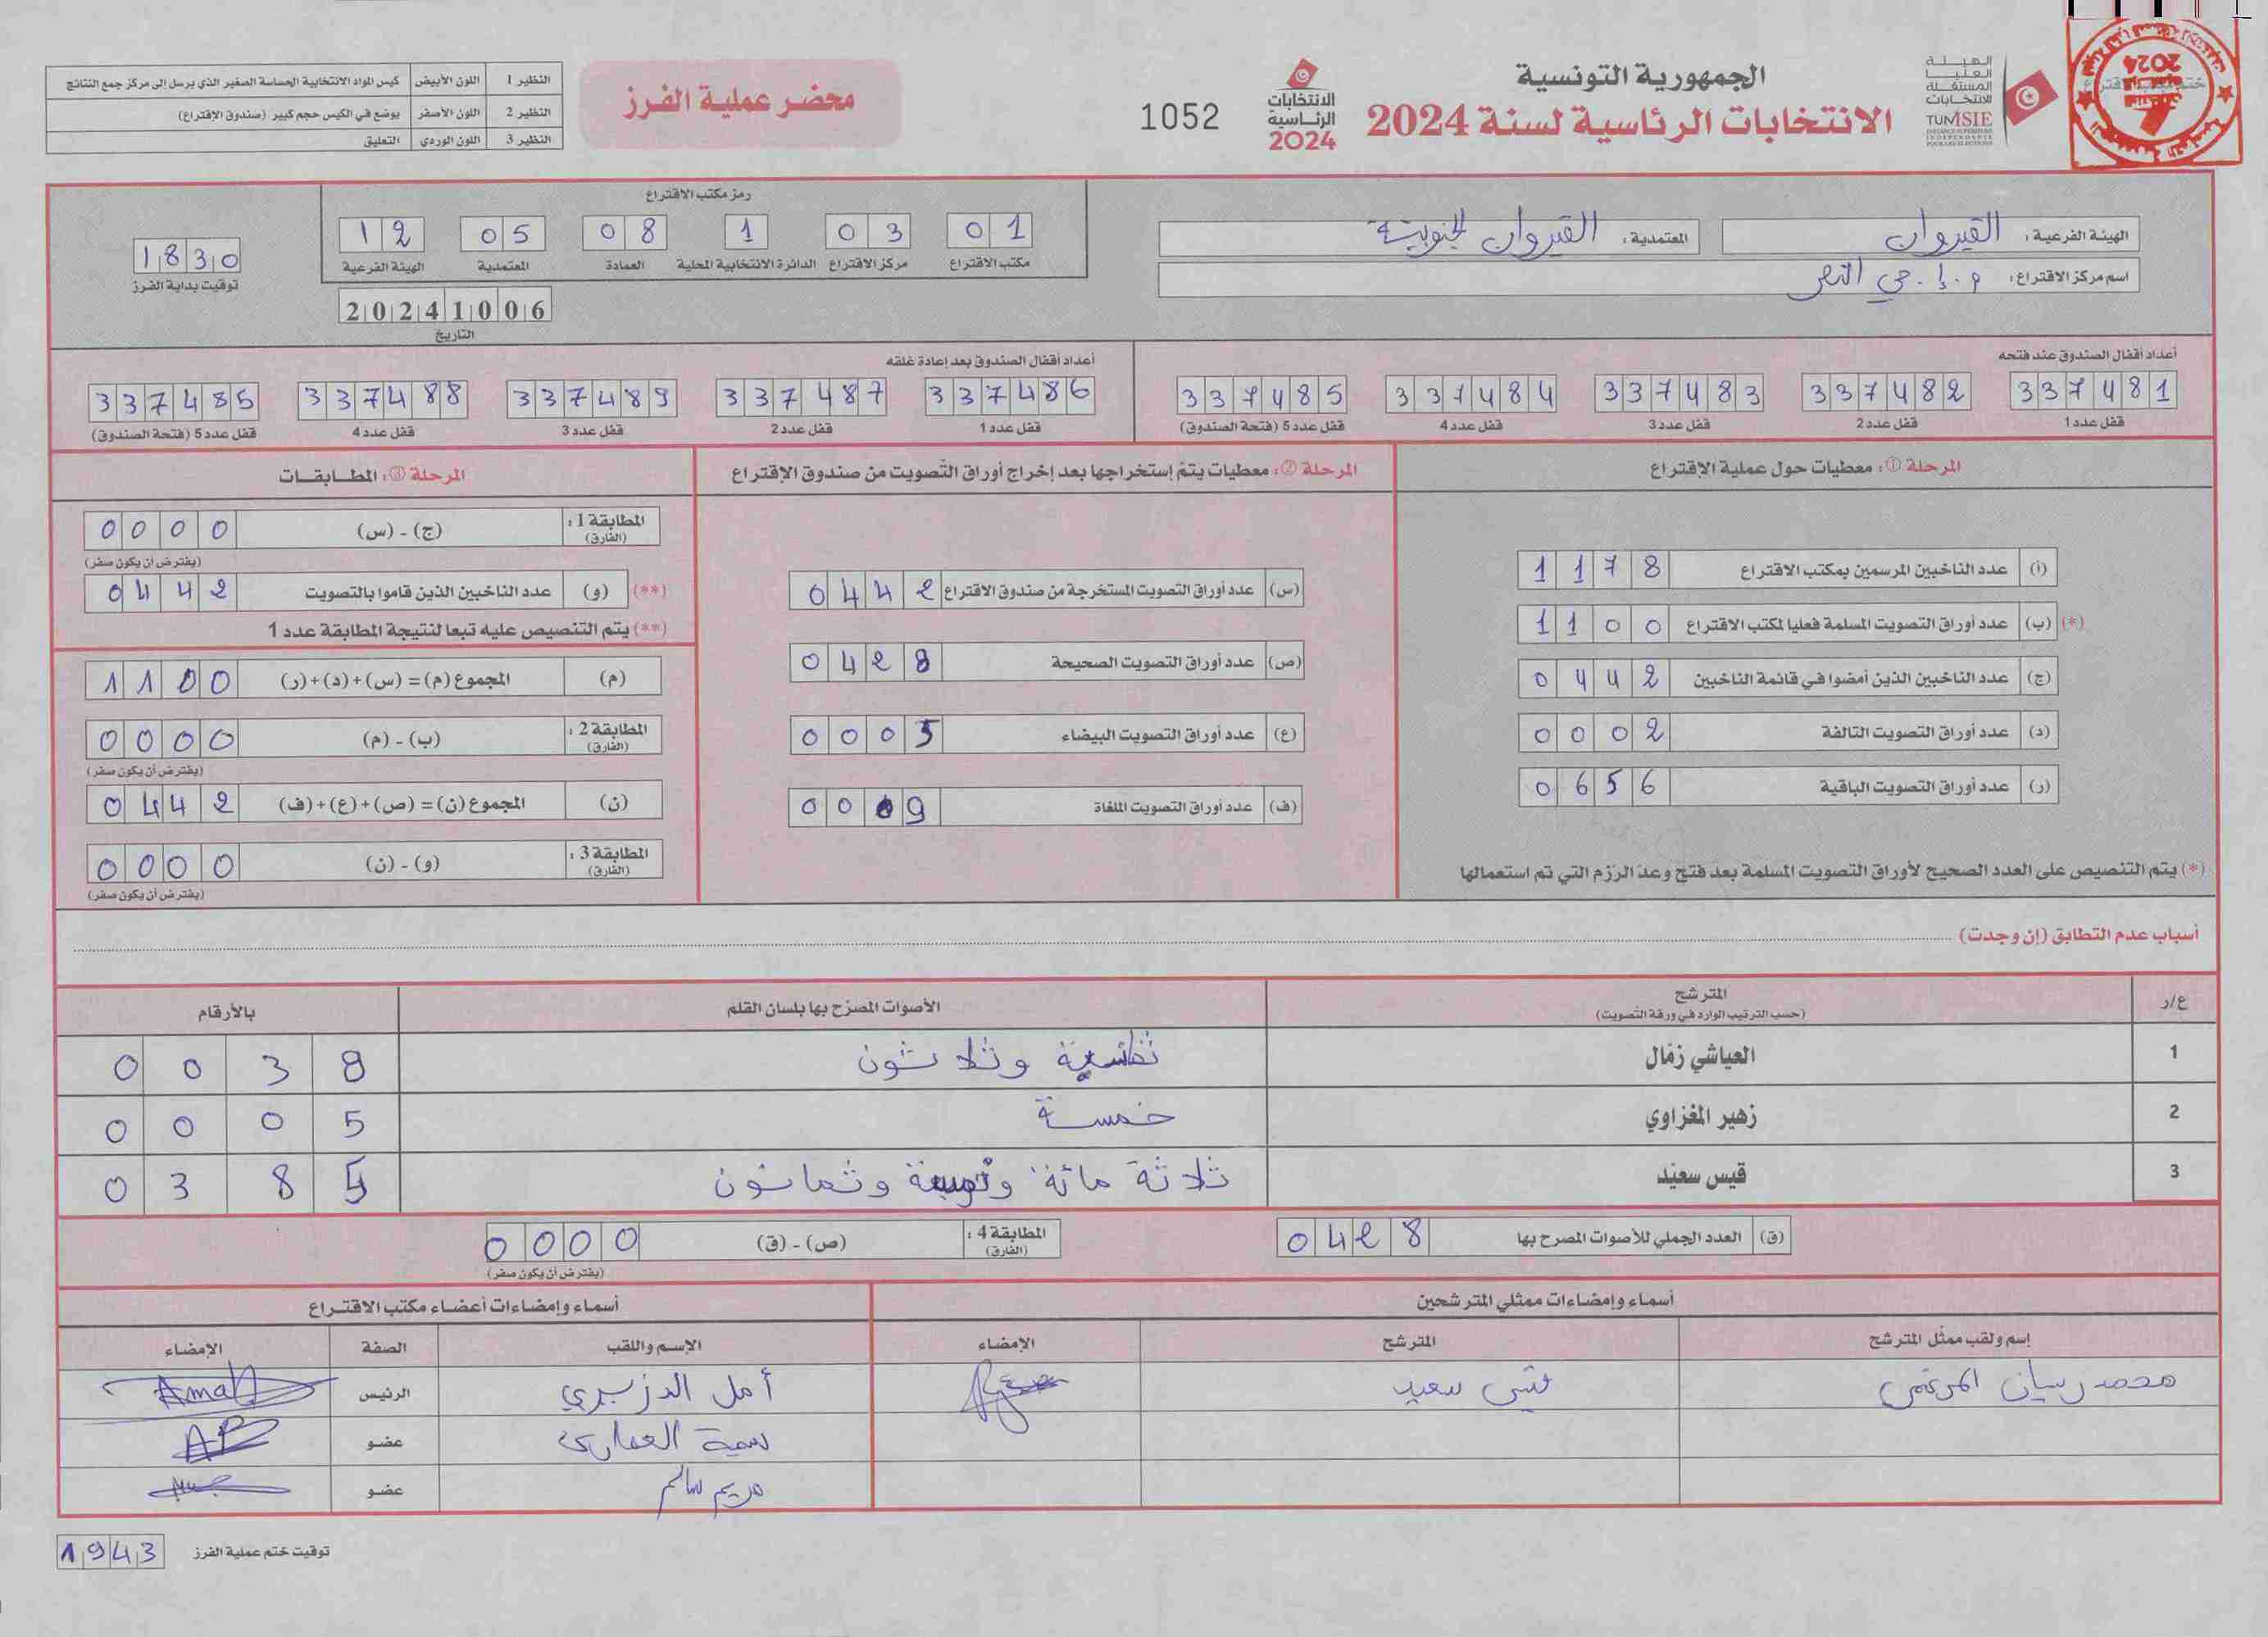 الجمهورية التونسية
الانتخابات الرئاسية لسنة 2024
الهيئة العليا المستقلة للانتخابات
TUNISIE
INSTANCE SUPERIEURE INDEPENDANTE POUR LES ELECTIONS
الانتخابات الرئاسية 2024
1052
محضر عملية الفرز
النظير 1 اللون الأبيض كيس المواد الانتخابية الحساسة الصغير الذي يرسل إلى مركز جمع النتائج
النظير 2 اللون الأصفر يوضع في الكيس حجم كبير (صندوق الإقتراع)
النظير 3 اللون الوردي التعليق
الهيئة الفرعية: القيروان
المعتمدية: القيروان الجنوبية
اسم مركز الاقتراع: م.إ. حي النصر
رمز مكتب الاقتراع
01 03 1 08 05 12
مكتب الاقتراع مركز الاقتراع الدائرة الانتخابية المحلية العمادة المعتمدية الهيئة الفرعية
1830
توقيت بداية الفرز
20241006
التاريخ
أعداد أقفال الصندوق عند فتحه
337481 337482 337483 337484 337485
قفل عدد 1 قفل عدد 2 قفل عدد 3 قفل عدد 4 قفل عدد 5 (فتحة الصندوق)
أعداد أقفال الصندوق بعد إعادة غلقه
337486 337487 337489 337488 337485
قفل عدد 1 قفل عدد 2 قفل عدد 3 قفل عدد 4 قفل عدد 5 (فتحة الصندوق)
المرحلة ①: معطيات حول عملية الإقتراع
(أ) عدد الناخبين المرسمين بمكتب الاقتراع 1178
(*) (ب) عدد أوراق التصويت المسلمة فعليا لمكتب الاقتراع 1100
(ج) عدد الناخبين الذين أمضوا في قائمة الناخبين 0442
(د) عدد أوراق التصويت التالفة 0002
(ر) عدد أوراق التصويت الباقية 0656
(*) يتم التنصيص على العدد الصحيح لأوراق التصويت المسلمة بعد فتح وعدّ الرّزم التي تم استعمالها
المرحلة ②: معطيات يتمّ إستخراجها بعد إخراج أوراق التّصويت من صندوق الإقتراع
(س) عدد أوراق التصويت المستخرجة من صندوق الاقتراع 0442
(ص) عدد أوراق التصويت الصحيحة 0428
(ع) عدد أوراق التصويت البيضاء 0005
(ف) عدد أوراق التصويت الملغاة 0009
المرحلة ③: المطابقات
المطابقة 1: (الفارق) (ج) - (س) 0000
(يفترض أن يكون صفر)
(**) (و) عدد الناخبين الذين قاموا بالتصويت 0442
(**) يتم التنصيص عليه تبعا لنتيجة المطابقة عدد 1
(م) المجموع (م) = (س)+(د)+(ر) 1100
المطابقة 2: (الفارق) (ب) - (م) 0000
(يفترض أن يكون صفر)
(ن) المجموع (ن) = (ص)+(ع)+(ف) 0442
المطابقة 3: (الفارق) (و) - (ن) 0000
(يفترض أن يكون صفر)
أسباب عدم التطابق (إن وجدت)
ع/ر المترشح (حسب الترتيب الوارد في ورقة التصويت) الأصوات المصرّح بها بلسان القلم بالأرقام
1 العياشي زمّال ثمانية وثلاثون 0038
2 زهير المغزاوي خمسة 0005
3 قيس سعيّد ثلاثة مائة وثمانون 0385
(ق) العدد الجملي للأصوات المصرح بها 0428
المطابقة 4: (الفارق) (ص) - (ق) 0000
(يفترض أن يكون صفر)
أسماء وإمضاءات ممثلي المترشحين
إسم ولقب ممثّل المترشح المترشح الإمضاء
محمد ريان قيس سعيد
أسماء وإمضاءات أعضاء مكتب الاقتراع
الإسم واللقب الصفة الإمضاء
أمل الدزيري الرئيس Amal
سمية العماري عضو
مريم سالم عضو
توقيت ختم عملية الفرز 1943